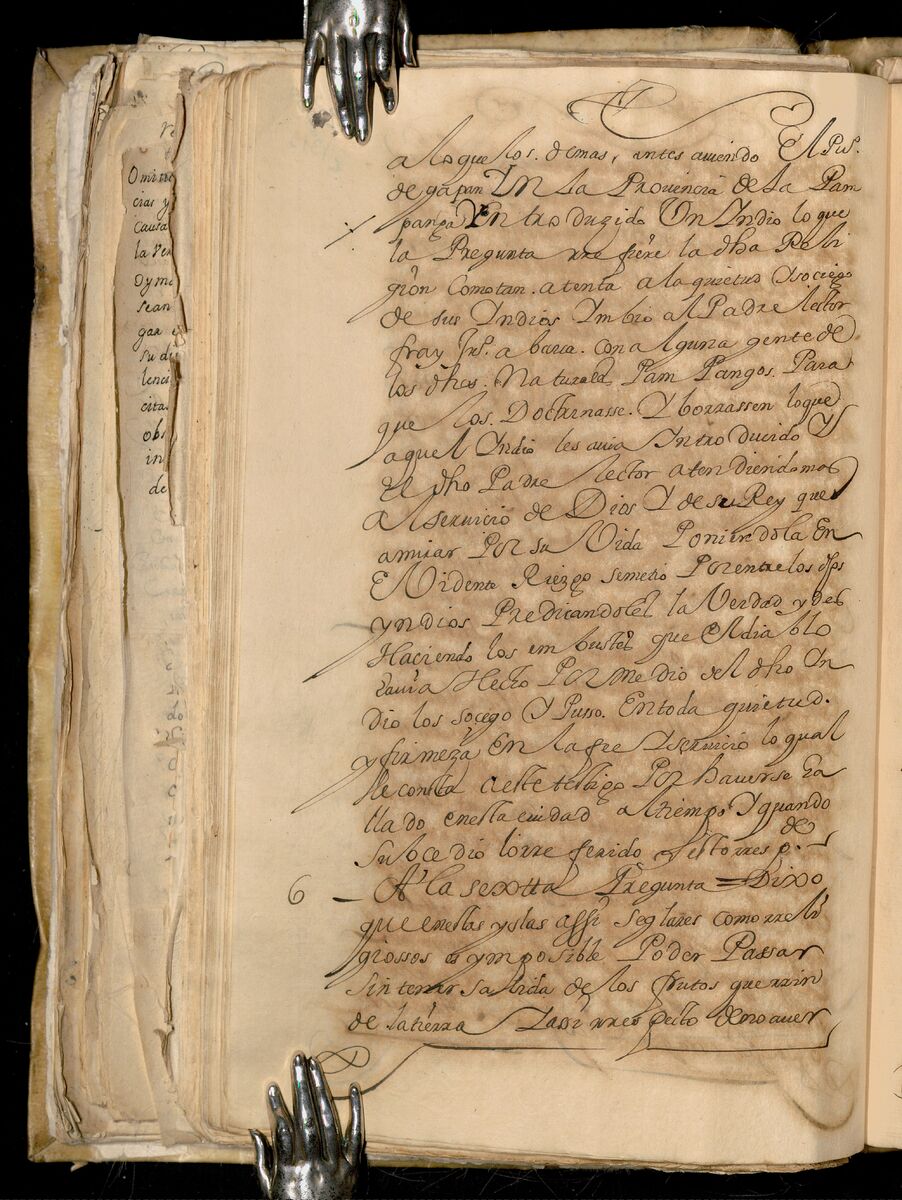 a lo que los. demas, antes auiendo El Pu.º
de gapan En La Prouincia de la Pam
panga Entroduzido Un Indio lo que
la Pregunta rrefiere la dha Reli
gion Como tan. atenta a la quietud Y sociego
de sus Yndios Ymbio al Padre lector
fray Jus.º a barca. con alguna gente de
los dhos. Naturales Pam Pangos. Para
que los. Doctrinasse. Y borrassen lo que
aquel Yndio les auia Introducido Y
El dho Padre lector atendiendo mas
al seruicio de Dios Y de su Rey que
a mirar Por su Vida Poniendola En
EVidente Riezgo se metio Por entre los dhos
yndios Predicandoles la Verdad y des
Haciendo los embustes que El diablo
hauia Hecho Por medio del dho Yn
dio los socego Y Pusso. En toda quietud.
y firmeza En la fee Y seruicio lo qual
le consta a este testigo Por hauerse ha
llado en esta ciudad al tiempo Y quando
Subcedio lo rre ferido Y esto rresp.de
6 _ A la sextta Pregunta = Dixo
que en estas yslas assi seglares como rreli
giossos es ymposible Poder Passar
sin tener salida de los frutos que rrin
de la tierra Y assi rrespecto de no auer
re
Omitie
cias y
Causa
la Ver
Dyme
sean
gar e
su di
lenci
cita
obs
in
de